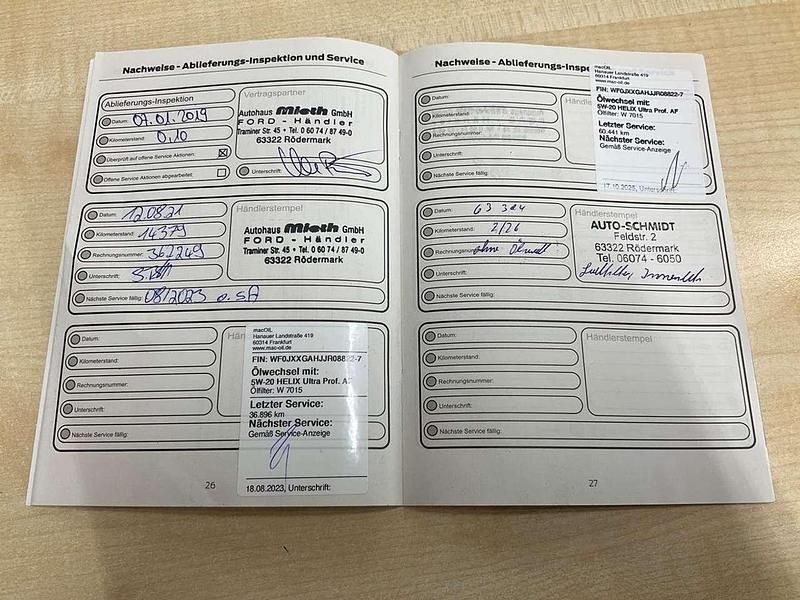 Nachweise - Ablieferungs-Inspektion und Service
Ablieferungs-Inspektion
Datum: 07.01.2019
Kilometerstand: 0,10
Überprüft auf offene Service Aktionen:
Offene Service Aktionen abgearbeitet:
Vertragspartner
Autohaus Mieth GmbH
FORD - Händler
Traminer Str. 45 • Tel. 0 60 74 / 87 49-0
63322 Rödermark
Unterschrift:
Datum: 12.08.21
Kilometerstand: 14379
Rechnungsnummer: 362249
Unterschrift:
Nächste Service fällig: 08/2023
Händlerstempel
Autohaus Mieth GmbH
FORD - Händler
Traminer Str. 45 • Tel. 0 60 74 / 87 49-0
63322 Rödermark
Datum:
Kilometerstand:
Rechnungsnummer:
Unterschrift:
Nächste Service fällig:
Hän
macOIL
Hanauer Landstraße 419
60314 Frankfurt
www.mac-oil.de
FIN: WF0JXXGAHJJR08822-7
Ölwechsel mit:
5W-20 HELIX Ultra Prof. AF
Ölfilter: W 7015
Letzter Service:
36.896 km
Nächster Service:
Gemäß Service-Anzeige
18.08.2023, Unterschrift:
26
Nachweise - Ablieferungs-Inspe
Datum:
Kilometerstand:
Rechnungsnummer:
Unterschrift:
Nächste Service fällig:
Händl
macOIL
Hanauer Landstraße 419
60314 Frankfurt
www.mac-oil.de
FIN: WF0JXXGAHJJR08822-7
Ölwechsel mit:
5W-20 HELIX Ultra Prof. AF
Ölfilter: W 7015
Letzter Service:
60.441 km
Nächster Service:
Gemäß Service-Anzeige
17.10.2025, Unterschrift:
Datum: 63 304
Kilometerstand: 2/26
Rechnungsnummer: ohne
Unterschrift:
Nächste Service fällig:
Händlerstempel
AUTO-SCHMIDT
Feldstr. 2
63322 Rödermark
Tel. 06074 - 6050
Datum:
Kilometerstand:
Rechnungsnummer:
Unterschrift:
Nächste Service fällig:
Händlerstempel
27